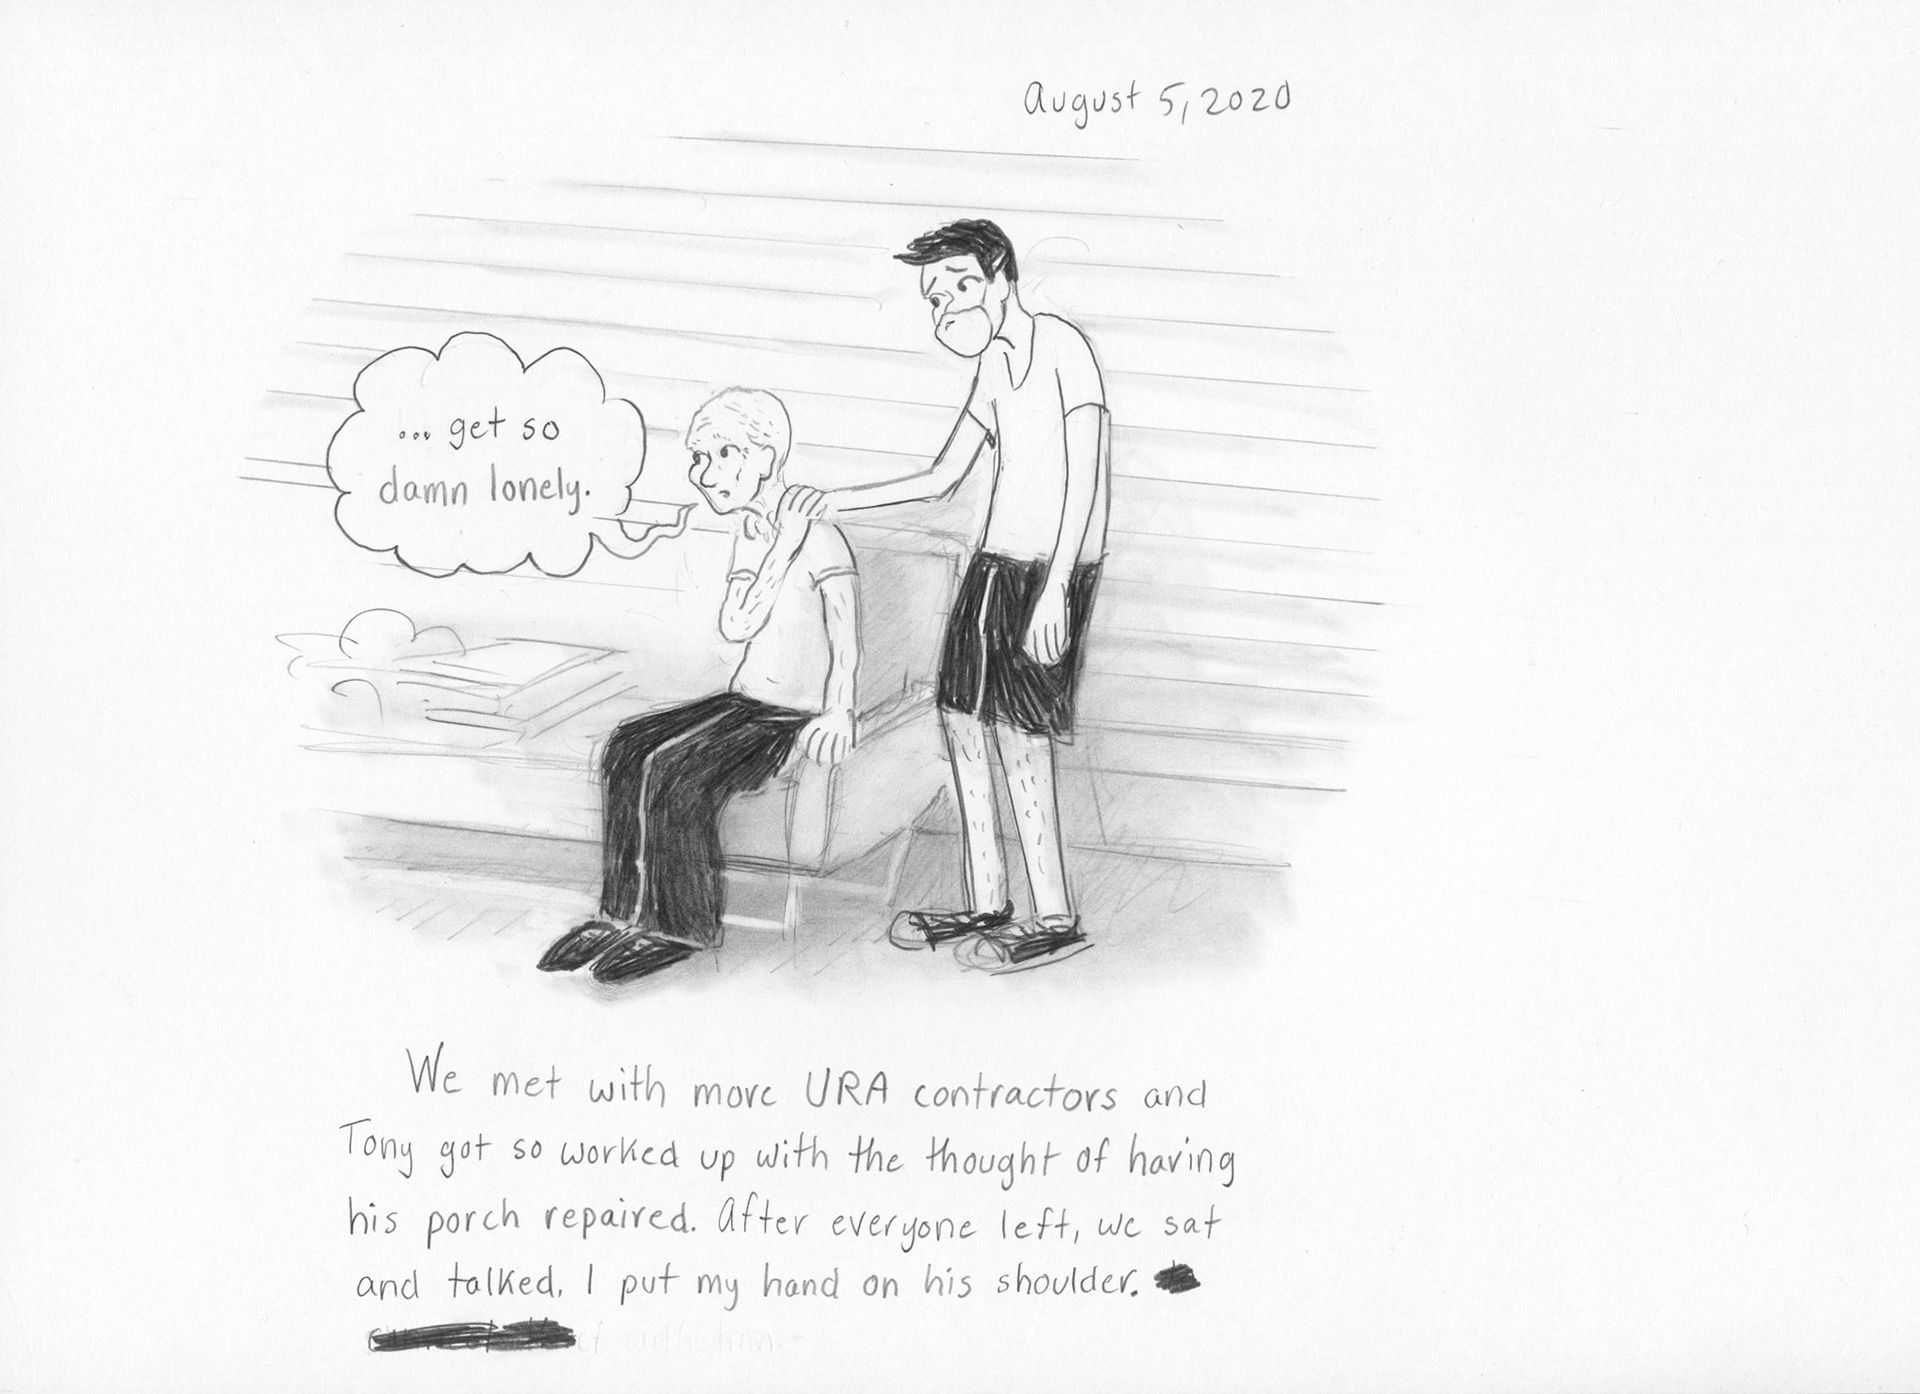 August 5, 2020
... get so
damn lonely.
We met with more URA contractors and
Tony got so worked up with the thought of having
his porch repaired. After everyone left, we sat
and talked. I put my hand on his shoulder.
with him